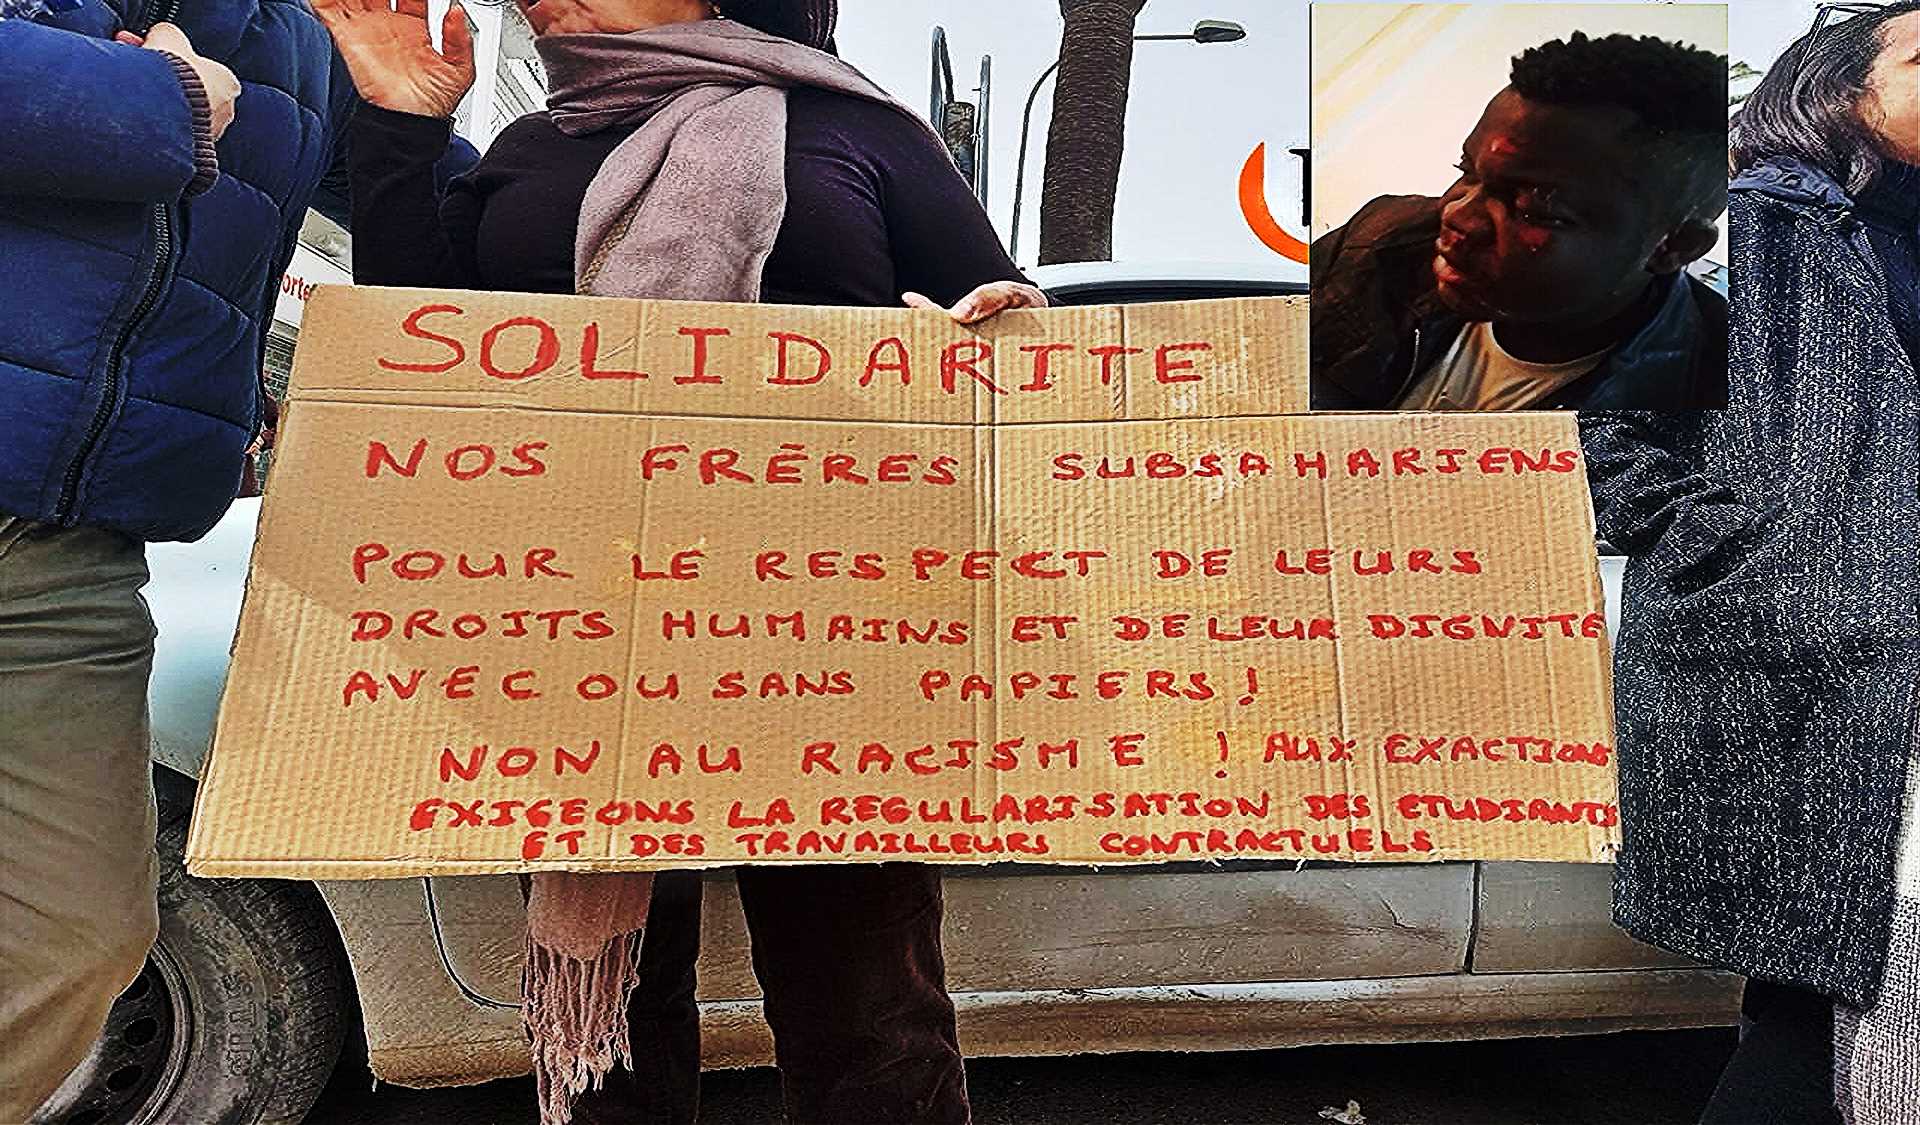 SOLIDARITE
NOS FRÈRES SUBSAHARIENS
POUR LE RESPECT DE LEURS
DROITS HUMAINS ET DE LEUR DIGNITE
AVEC OU SANS PAPIERS !
NON AU RACISME ! AUX EXACTIONS
EXIGEONS LA REGULARISATION DES ETUDIANTS
ET DES TRAVAILLEURS CONTRACTUELS